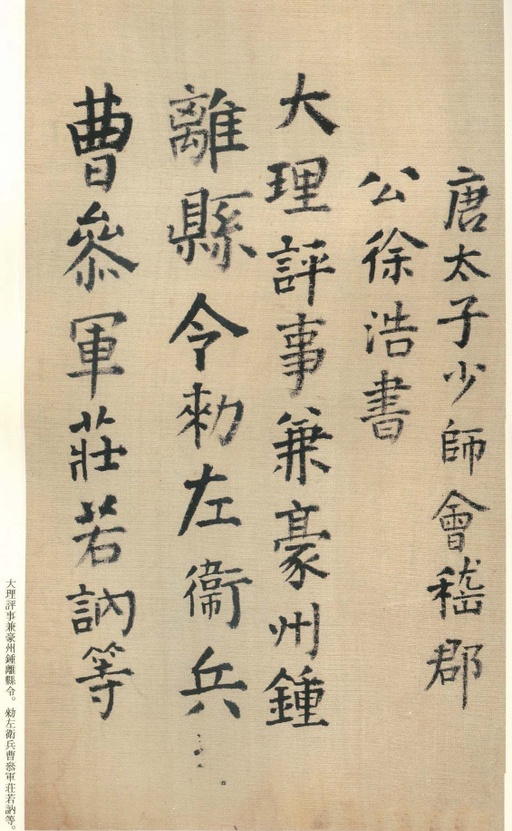 唐太子少師會稽郡
公徐浩書
大理評事兼豪州鍾
離縣令勑左衞兵
曹叅軍莊若訥等
大理評事兼豪州鍾離縣令。勑左衞兵曹叅軍莊若訥等。